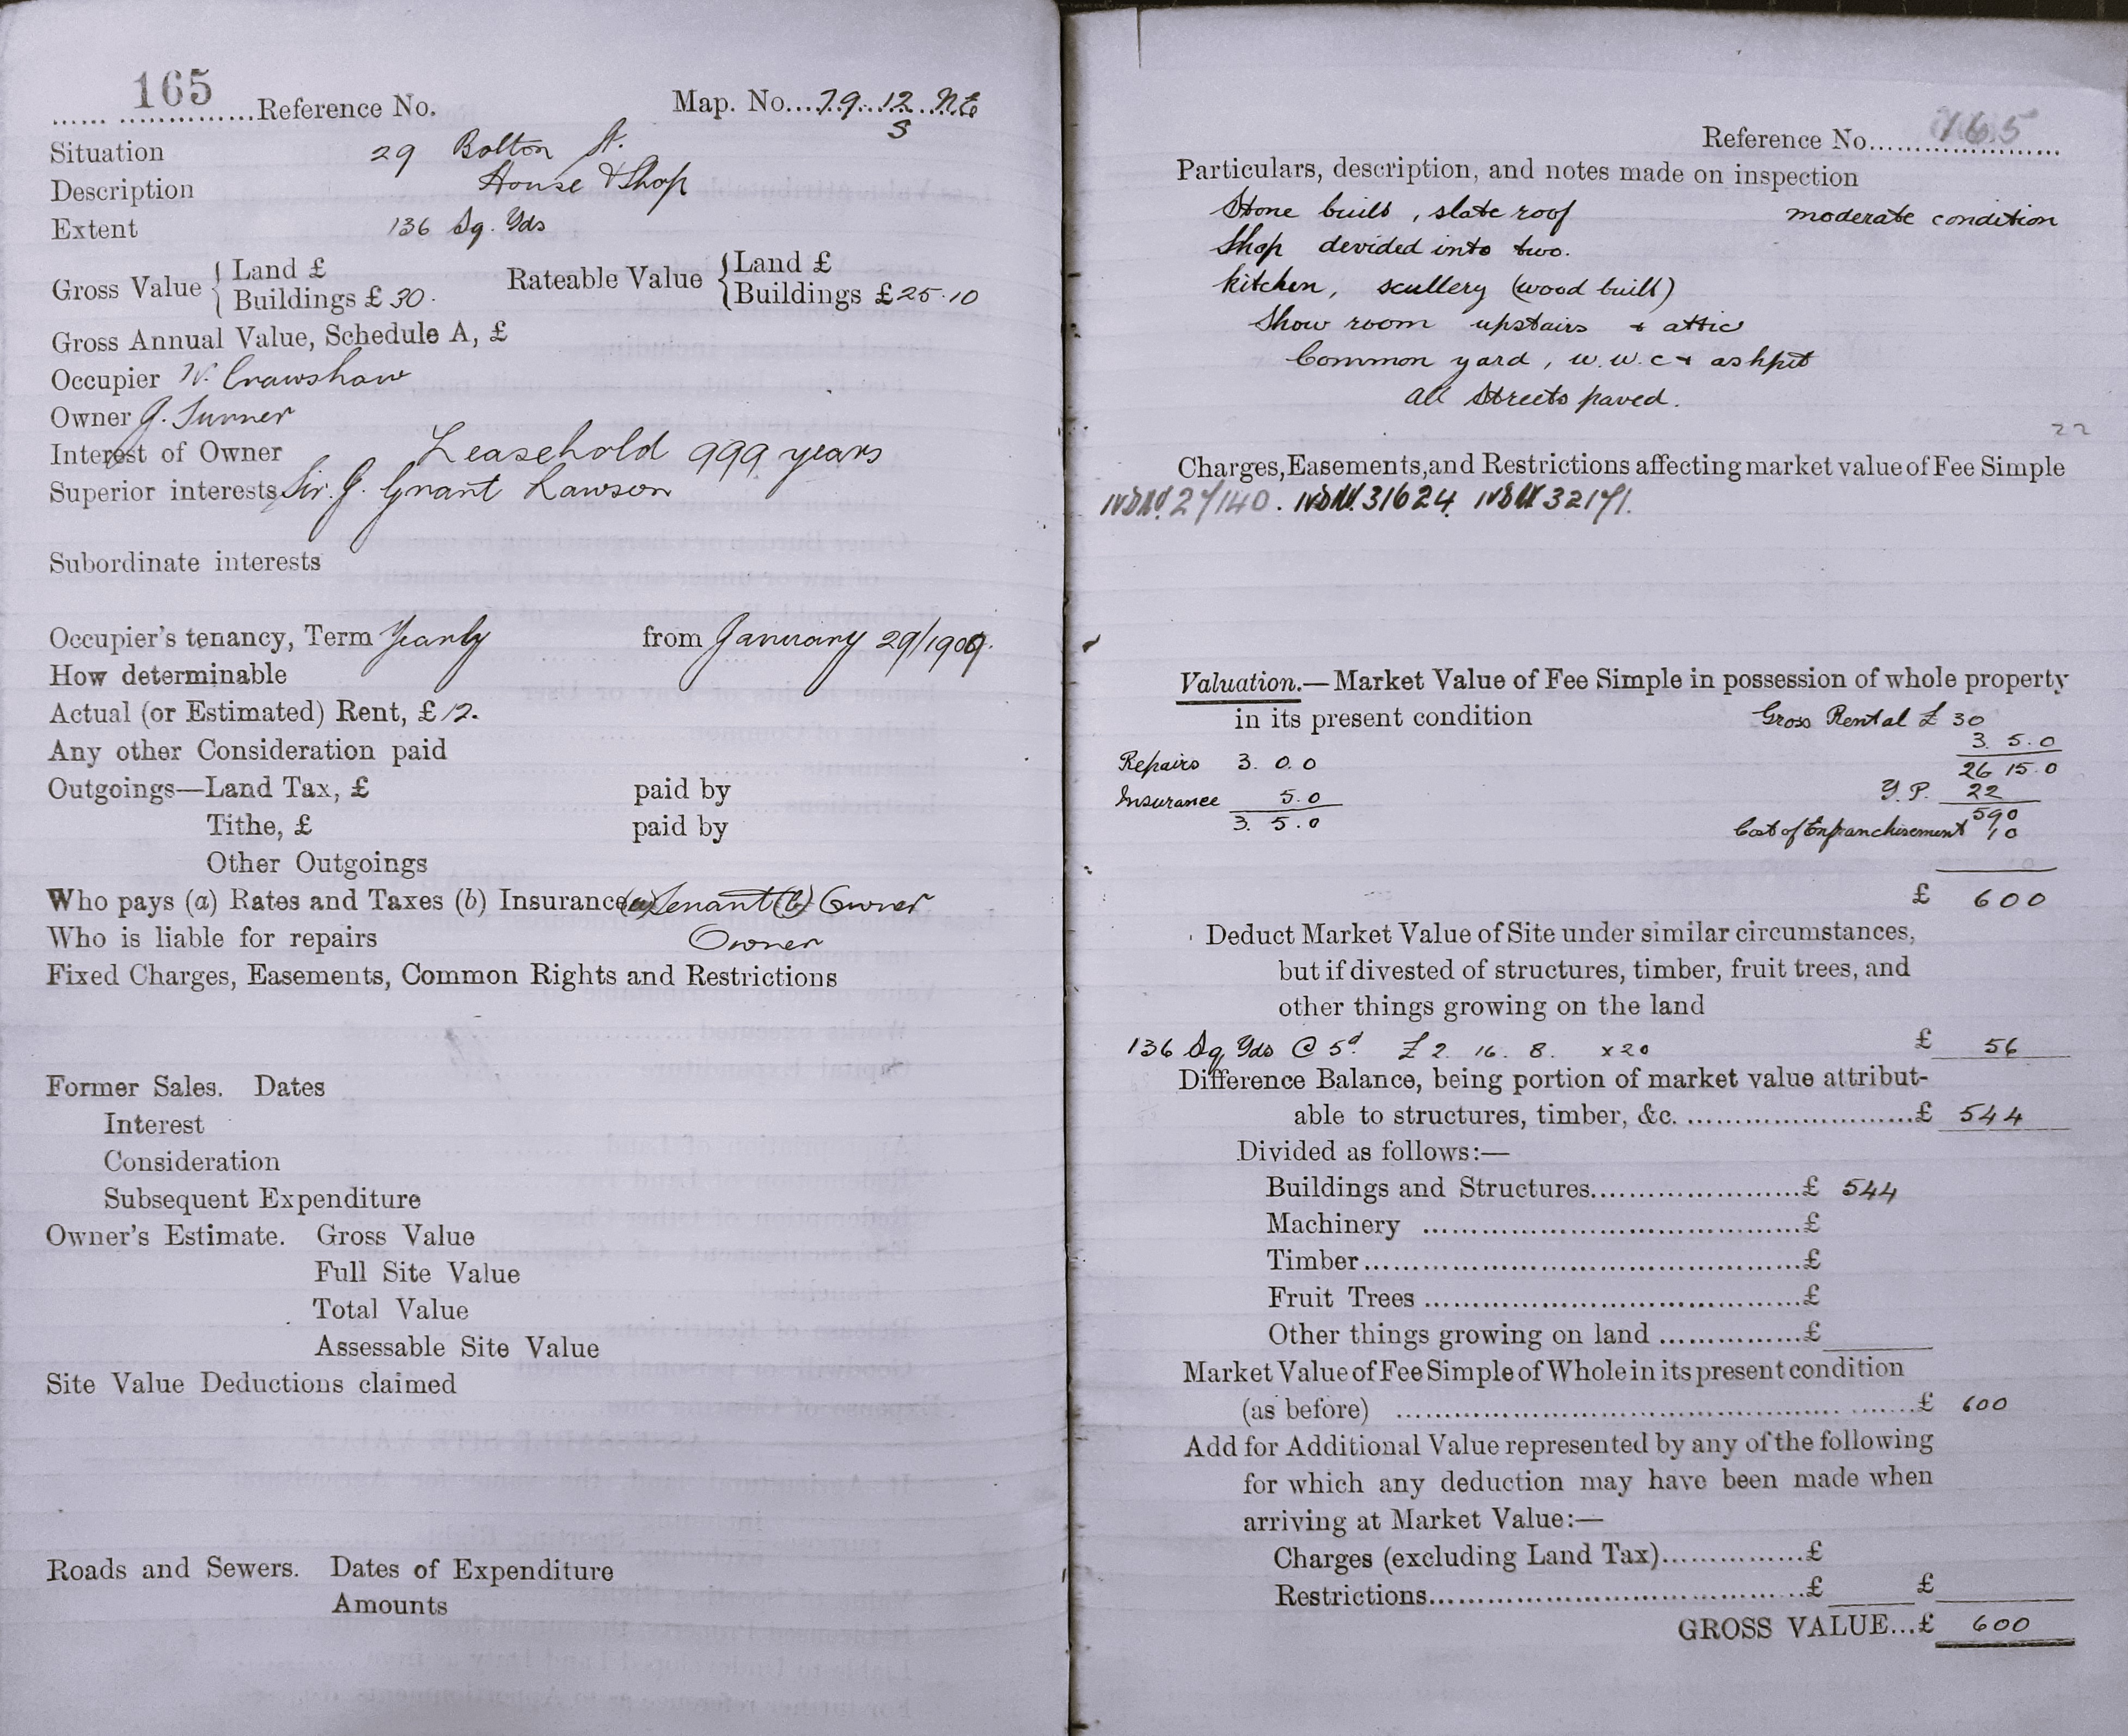 165
...... ..............Reference No. Map. No....79...12...N.E
S
Situation 29 Bolton St.
Description House & Shop
Extent 136 Sq. Yds
Gross Value { Land £ Rateable Value { Land £
Buildings £ 30. Buildings £25.10
Gross Annual Value, Schedule A, £
Occupier W. Crawshaw
Owner J. Turner
Interest of Owner Leasehold 999 years
Superior interests Sir. J. Grant Lawson
Subordinate interests
Occupier's tenancy, Term Yearly from January 29/1909.
How determinable
Actual (or Estimated) Rent, £12.
Any other Consideration paid
Outgoings—Land Tax, £ paid by
Tithe, £ paid by
Other Outgoings
Who pays (a) Rates and Taxes (b) Insurance (a) Tenant (b) Owner
Who is liable for repairs Owner
Fixed Charges, Easements, Common Rights and Restrictions
Former Sales. Dates
Interest
Consideration
Subsequent Expenditure
Owner's Estimate. Gross Value
Full Site Value
Total Value
Assessable Site Value
Site Value Deductions claimed
Roads and Sewers. Dates of Expenditure
Amounts
Reference No. 165
Particulars, description, and notes made on inspection
Stone built, slate roof moderate condition
Shop devided into two.
kitchen, scullery (wood built)
Show room upstairs & attic
Common yard, w.w.c & ashpit
all Streets paved.
22
Charges, Easements, and Restrictions affecting market value of Fee Simple
27/140. 31624. 32171.
Valuation.—Market Value of Fee Simple in possession of whole property
in its present condition Gross Rental £ 30
3. 5. 0
Repairs 3. 0. 0 26 15. 0
Insurance 5. 0 Y.P. 22
3. 5. 0 590
Cost of Enfranchisement 10
£ 600
Deduct Market Value of Site under similar circumstances,
but if divested of structures, timber, fruit trees, and
other things growing on the land
136 Sq Yds @ 5d £2. 16. 8. x20 £ 56
Difference Balance, being portion of market value attribut-
able to structures, timber, &c. ........................£ 544
Divided as follows:—
Buildings and Structures......................£ 544
Machinery ........................................£
Timber..............................................£
Fruit Trees .......................................£
Other things growing on land ...............£
Market Value of Fee Simple of Whole in its present condition
(as before) .......................................................£ 600
Add for Additional Value represented by any of the following
for which any deduction may have been made when
arriving at Market Value:—
Charges (excluding Land Tax)...............£
Restrictions.......................................£ £
GROSS VALUE...£ 600